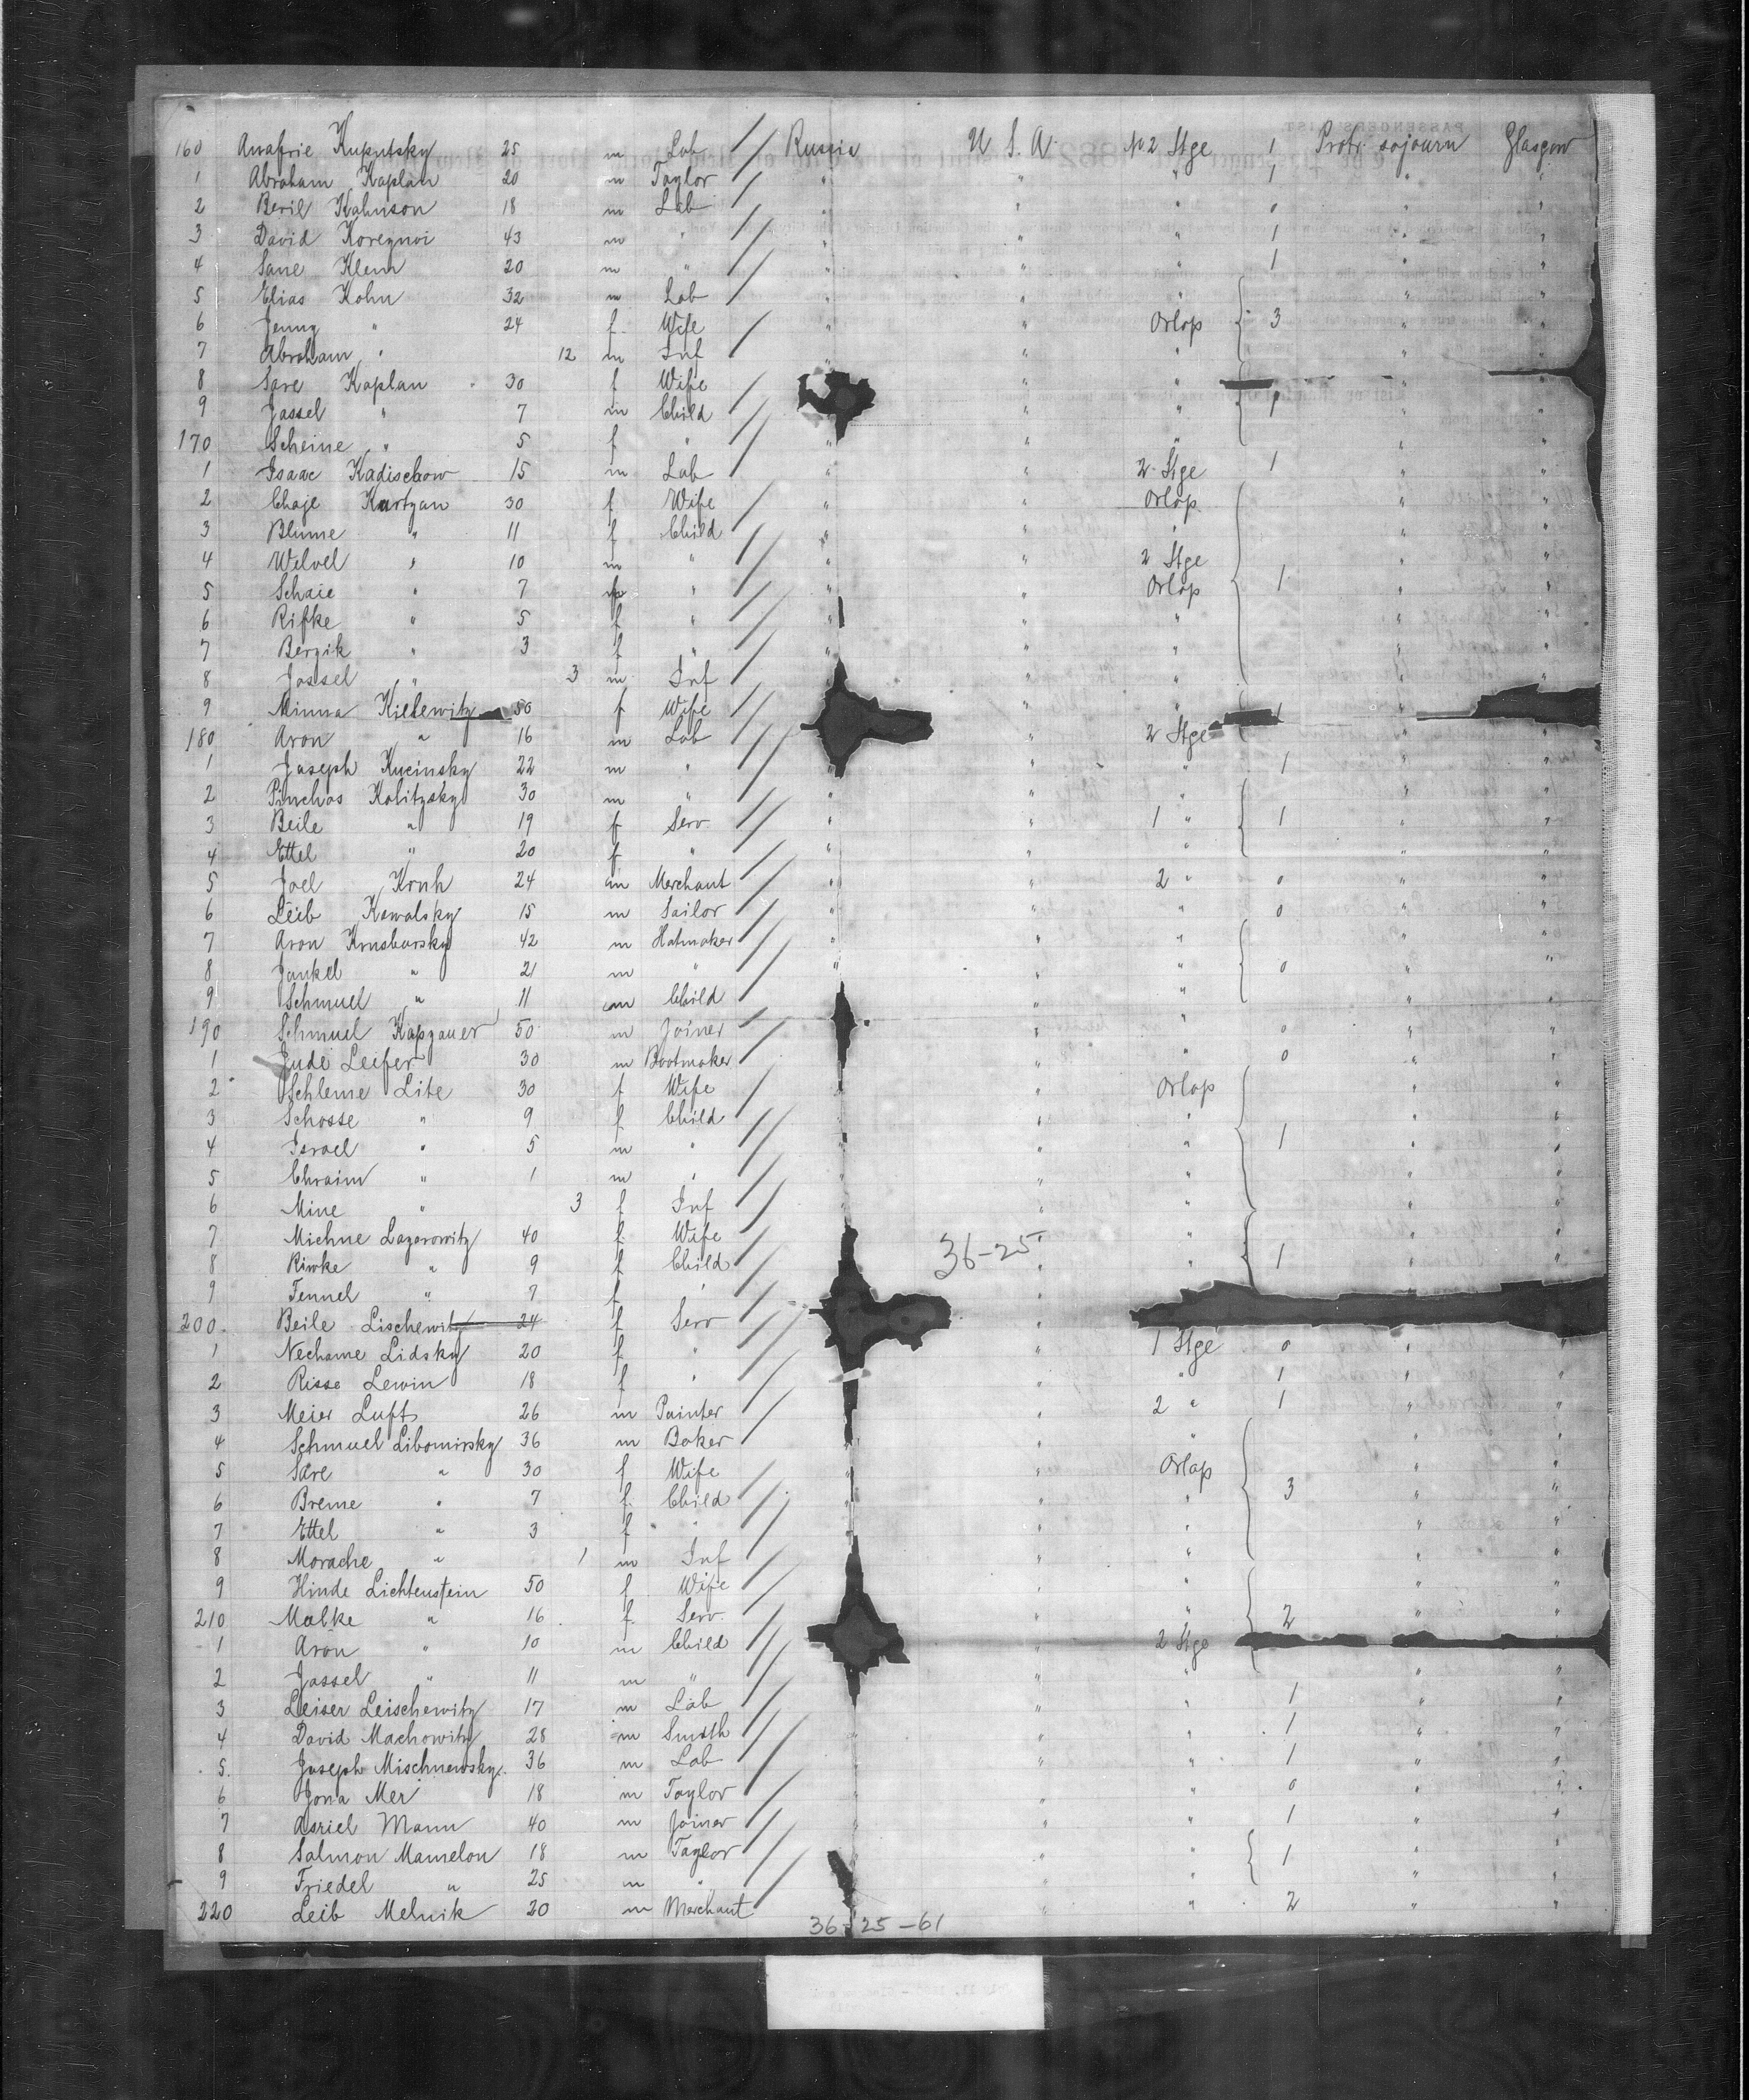 160 Anafrie Kuputsky 25 m Lab Russia U. S. A. No 2 Stge 1 Protr. sojourn Glasgow
1 Abraham Kaplan 20 m Taylor " " " 1 " "
2 Beril Kahnson 18 m Lab " " " 0 " "
3 David Koreynoi 43 m " " " " 1 " "
4 Sane Klem 20 m " " " " 1 " "
5 Elias Kohn 32 m Lab " " " " "
6 Jenny " 24 f Wife " " Orlop 3 " "
7 Abraham " 12 m Inf " " " " "
8 Sare Kaplan 30 f Wife " " " "
9 Jassel " 7 m Child " " 1 " "
170 Scheine " 5 f " " " " " "
1 Isaac Kadischow 15 m Lab " " 2 Stge 1 " "
2 Chaje Kartzan 30 f Wife " " Orlop " "
3 Blume " 11 f Child " " " " "
4 Welvel " 10 m " " " 2 Stge " "
5 Schaie " 7 " " " Orlop 1 " "
6 Rifke " 5 f " " " " "
7 Berzik " 3 f " " " " " "
8 Jassel " 3 m Inf " " " "
9 Minna Kielewitz 50 f Wife " " 1
180 Aron " 16 m Lab " 2 Stge " "
1 Joseph Kucinsky 22 m " " " " 1 " "
2 Pinchos Kolitzsky 30 m " " " " " "
3 Beile " 19 f Serv " " 1 " 1 " "
4 Ettel " 20 f " " " " " "
5 Joel Kruh 24 m Merchant " " 2 " 0 " "
6 Leib Kowalsky 15 m Sailor " " " 0 " "
7 Aron Krusbarsky 42 m Hatmaker " " " " "
8 Jankel " 21 m " " " " 0 " "
9 Schmuel " 11 m Child " " " "
190 Schmuel Kapzauer 50 m Joiner " " 0 " "
1 Jude Leifer 30 m Bootmaker " " 0 " "
2 Schleme Lite 30 f Wife " " Orlop " "
3 Schosse " 9 f Child " " " "
4 Israel " 5 m " " " 1 " "
5 Chraim " 1 m " " " " " "
6 Mine " 3 f Inf " " " "
7 Michne Lazarowitz 40 f Wife " " " "
8 Riwke " 9 f Child " " 1 " "
36-25
9 Tennel " 7 f " "
200 Beile Lischewitz 24 f Serv "
1 Nechame Lidsky 20 f " " 1 Stge 0 " "
2 Risse Lewin 18 f " " " 1 " "
3 Meier Luft 26 m Painter " 2 " 1 " "
4 Schmuel Libomirsky 36 m Baker " " " "
5 Sare " 30 f Wife " " Orlop " "
6 Breme " 7 f Child " " " 3 " "
7 Ettel " 3 f " " " " "
8 Morache " 1 m Inf " " " "
9 Hinde Lichtenstein 50 f Wife " " " "
210 Malke " 16 f Serv " " 2 " "
1 Aron " 10 m Child " 2 Stge
2 Jassel " 11 m " " " " "
3 Leiser Leischewitz 17 m Lab " " 1 " "
4 David Machowitz 28 m Smith " " " 1 " "
5 Joseph Mischnewsky 36 m Lab " " " 1 " "
6 Jona Mer 18 m Taylor " " " 0 " "
7 Asriel Mann 40 m Joiner " " " 1 " "
8 Salmon Mamelon 18 m Taylor " " " 1 " "
9 Friedel " 25 m " " " " "
220 Leib Melnik 20 m Merchant " " 2 " "
36-25-61